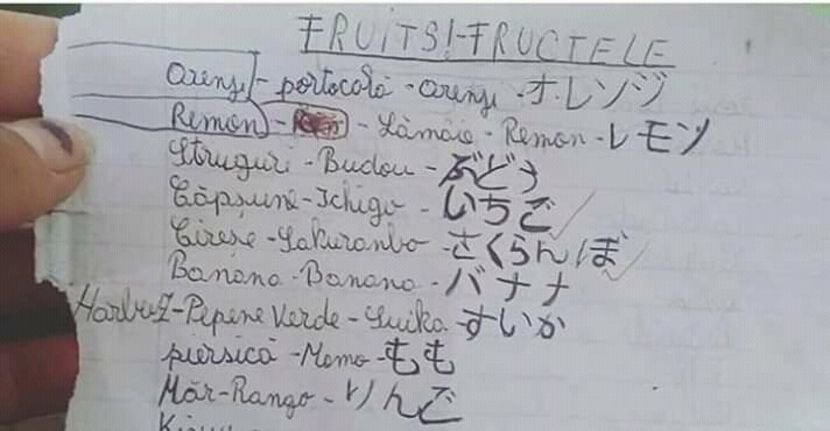 FRUITS!-FRUCTELE
Orenji - portocală - Orenji - オレンジ
Remon - Lămâie - Remon - レモン
Struguri - Budou - ぶどう
Căpșune - Ichigo - いちご
Cireșe - Sakuranbo - さくらんぼ
Banana - Banana - バナナ
Harbuz - Pepene Verde - Suika - すいか
piersică - Momo - もも
Măr - Rango - りんご